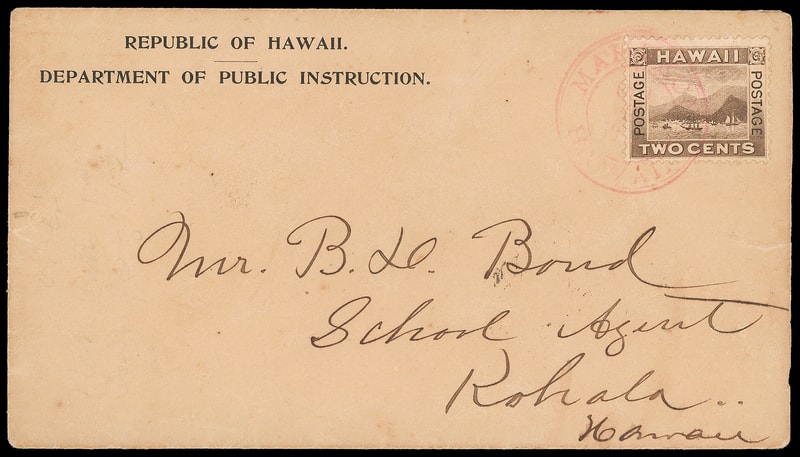 REPUBLIC OF HAWAII.
DEPARTMENT OF PUBLIC INSTRUCTION.
HAWAII
POSTAGE
POSTAGE
TWO CENTS
Mr. B. D. Bond
School Agent
Kohala ..
Hawaii